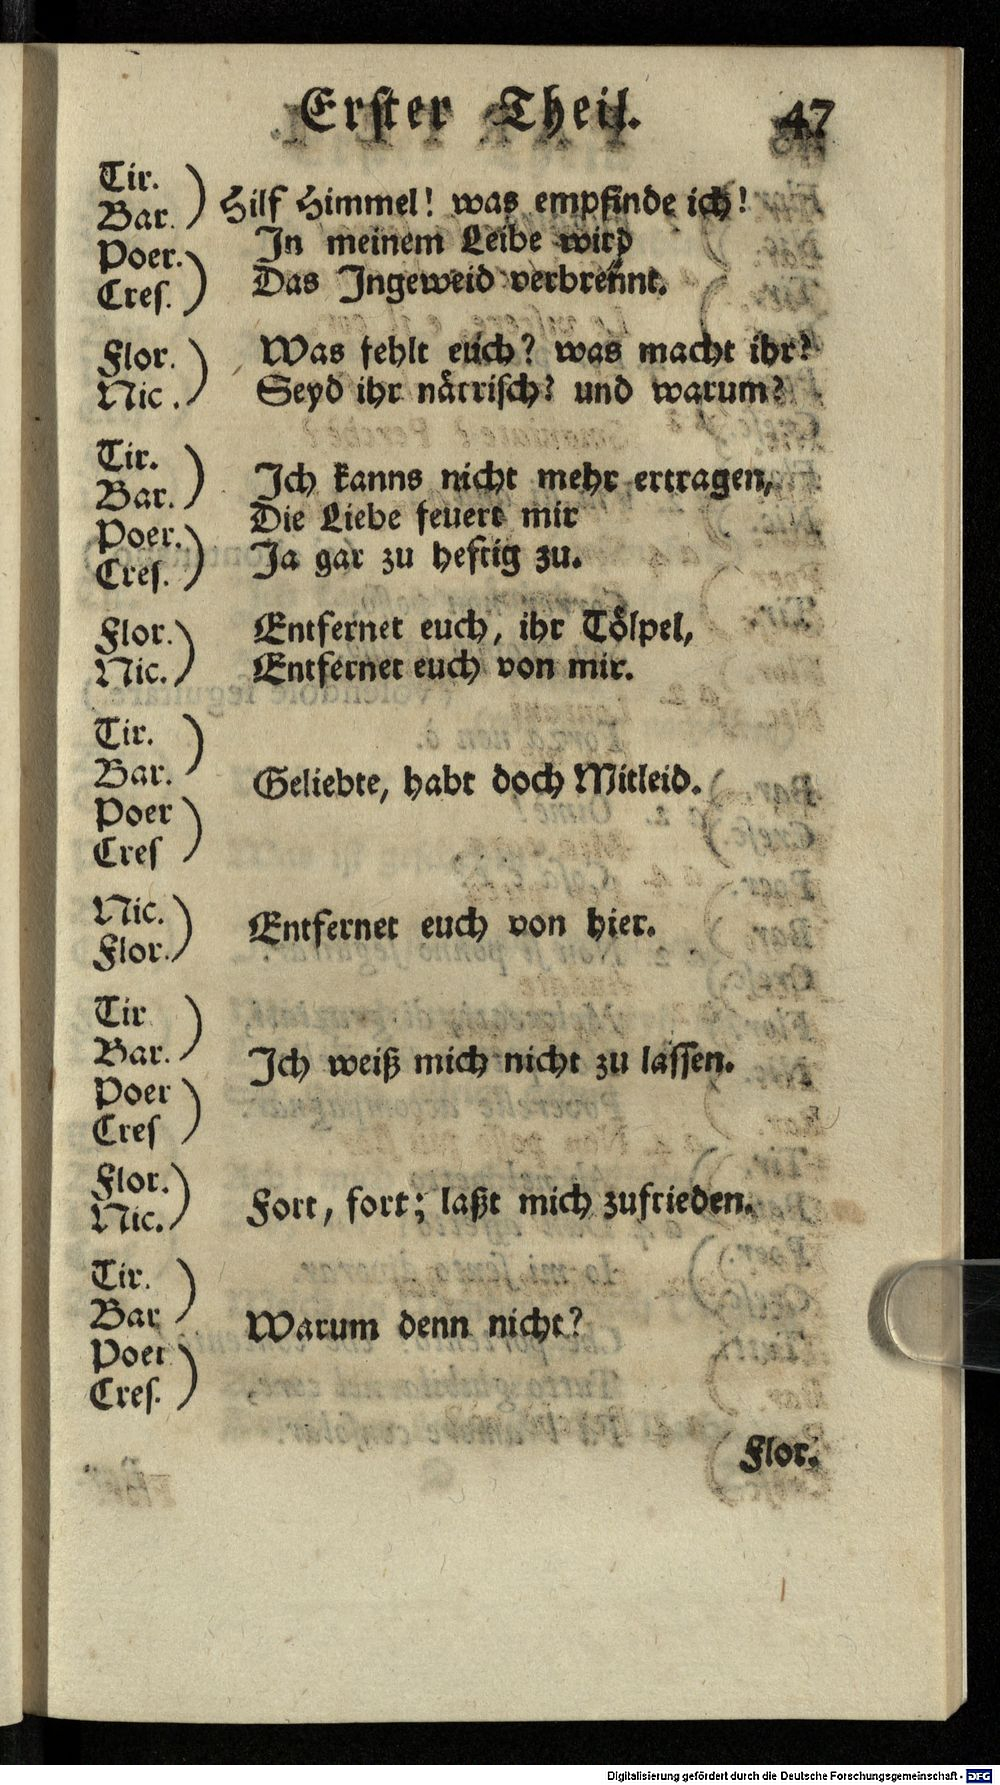 Erster Theil. 47
Tir.
Bar. ) Hilf Himmel! was empfinde ich!
Poer. In meinem Leibe wird
Cres. ) Das Ingeweid verbrennt.
Flor. Was fehlt euch? was macht ihr?
Nic. ) Seyd ihr närrisch? und warum?
Tir.
Bar. ) Ich kanns nicht mehr ertragen,
Poer. Die Liebe feuert mir
Cres. ) Ja gar zu heftig zu.
Flor. Entfernet euch, ihr Tölpel,
Nic. ) Entfernet euch von mir.
Tir.
Bar. ) Geliebte, habt doch Mitleid.
Poer
Cres )
Nic.
Flor. ) Entfernet euch von hier.
Tir
Bar. ) Ich weiß mich nicht zu lassen.
Poer
Cres )
Flor.
Nic. ) Fort, fort; laßt mich zufrieden.
Tir.
Bar ) Warum denn nicht?
Poer
Cres. )
Flor.
Digitalisierung gefördert durch die Deutsche Forschungsgemeinschaft - DFG